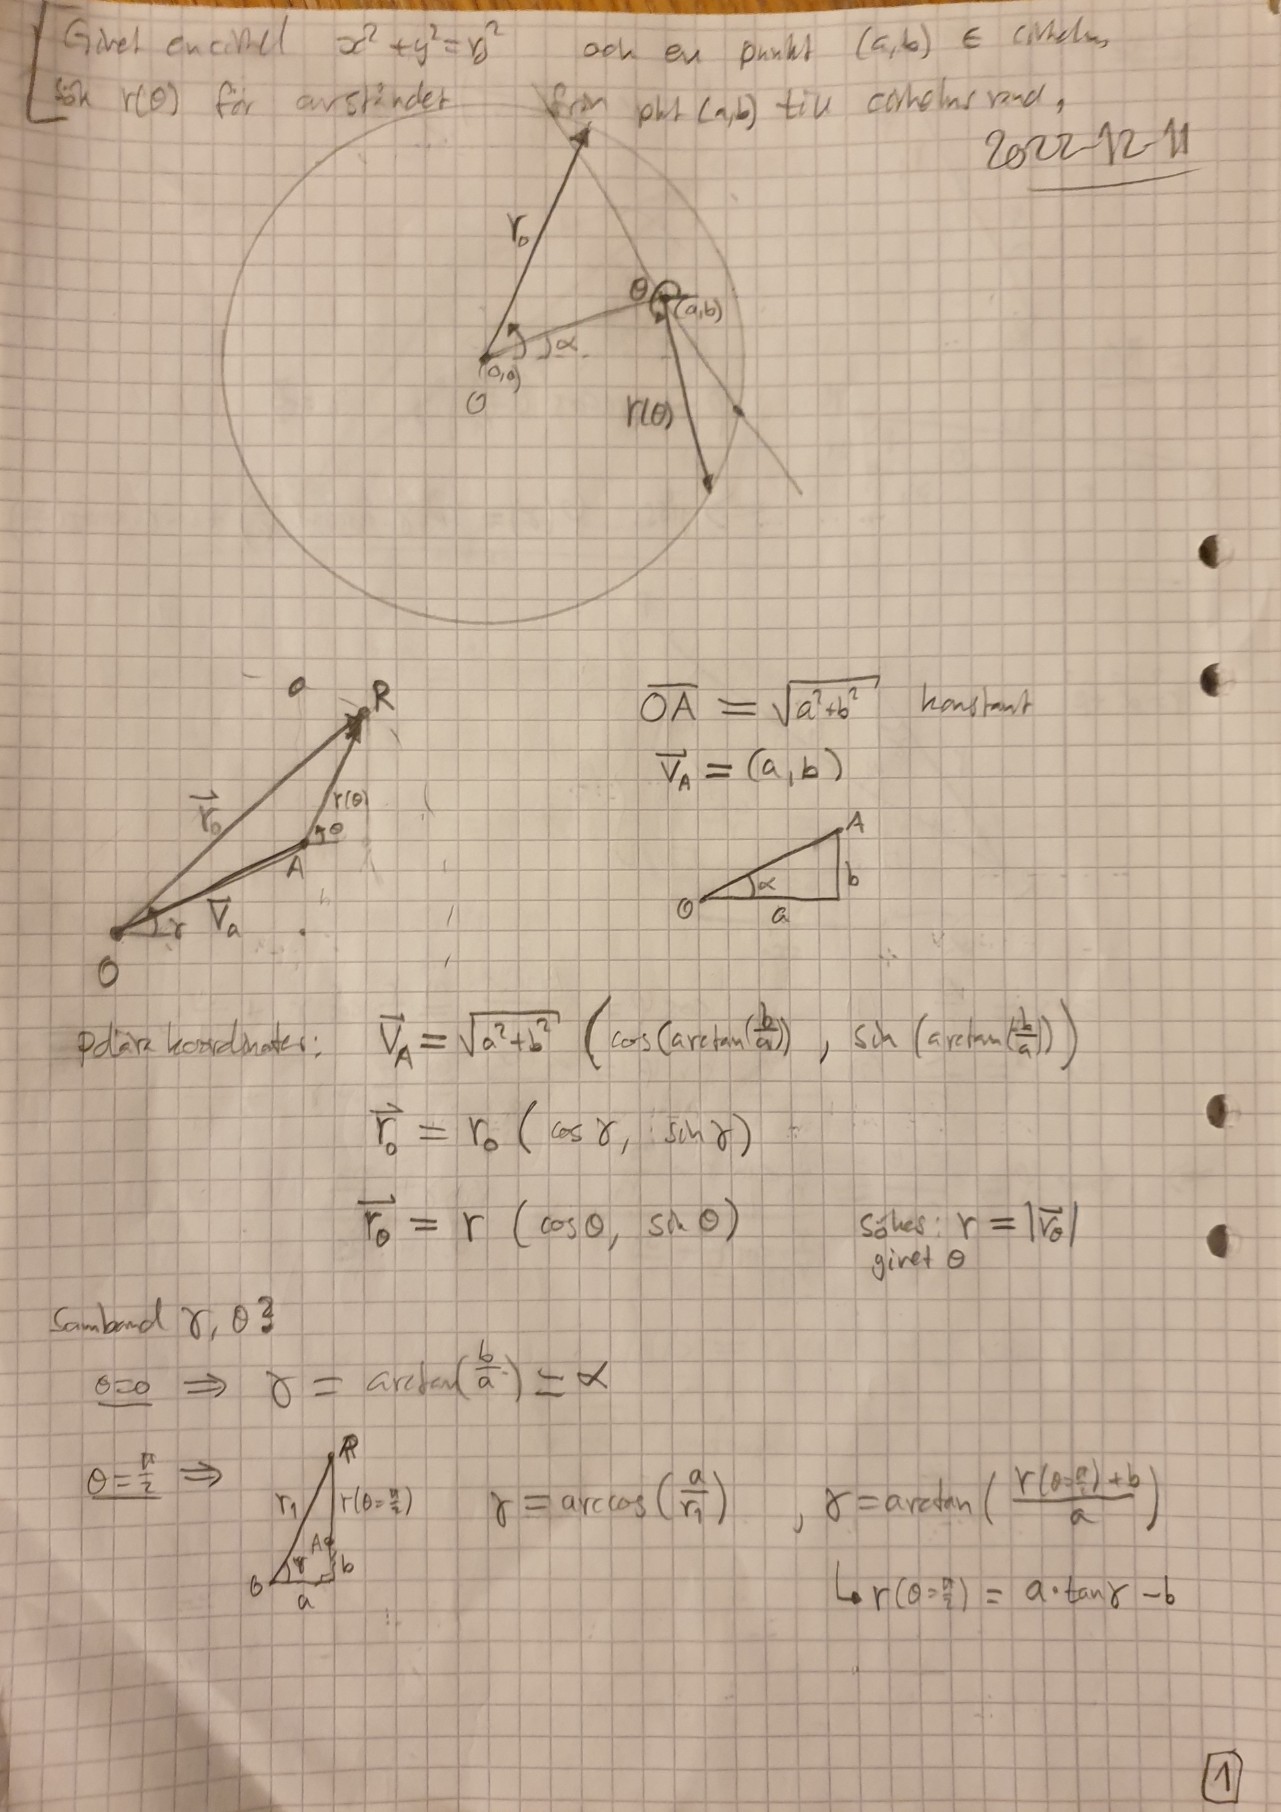 Givet en cirkel x² + y² = r₀² och en punkt (a,b) ∈ cirkeln,
sök r(θ) för avståndet från pkt (a,b) till cirkelns rand,
2022-12-11
r₀
θ
(a,b)
α
(0,0)
O
r(θ)
R
r⃗₀
r(θ)
θ
A
γ
V⃗ₐ
O
OA = √(a²+b²) konstant
V⃗_A = (a, b)
A
α
b
O
a
polära koordinater: V⃗_A = √(a²+b²) (cos(arctan(b/a)), sin(arctan(b/a)))
r⃗₀ = r₀ (cos γ, sin γ)
r⃗_θ = r (cos θ, sin θ) sökes: r = |r⃗_θ|
givet θ
Samband γ, θ?
θ=0 ⇒ γ = arctan(b/a) = α
θ = π/2 ⇒
R
r₁
r(θ=π/2)
A
γ
b
O
a
γ = arccos(a/r₁) , γ = arctan((r(θ=π/2)+b)/a)
↳ r(θ=π/2) = a·tan γ − b
1